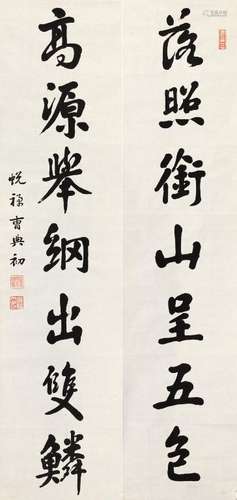 落照銜山呈五色
高源舉網出雙鱗
悅禪曹典初